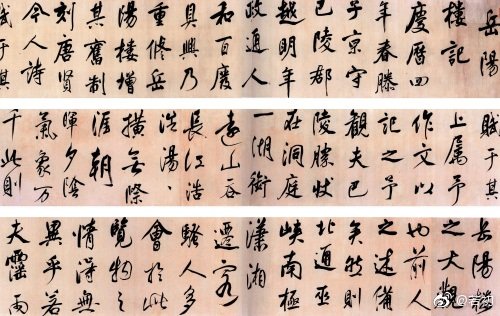 岳陽
樓記
慶曆四
年春滕
子京守
巴陵郡
越明年
政通人
和百廢
具興乃
重修岳
陽樓增
其舊制
刻唐賢
今人詩
賦于其
賦于其
上屬予
作文以
記之予
觀夫巴
陵勝狀
在洞庭
一湖銜
遠山吞
長江浩
浩湯、
橫無際
涯朝
暉夕陰
氣象万
千此則
岳陽樓
之大觀
也前人
之述備
矣然則
北通巫
峽南極
瀟湘
遷客
騷人多
會於此
覽物之
情得無
異乎若
夫霪雨